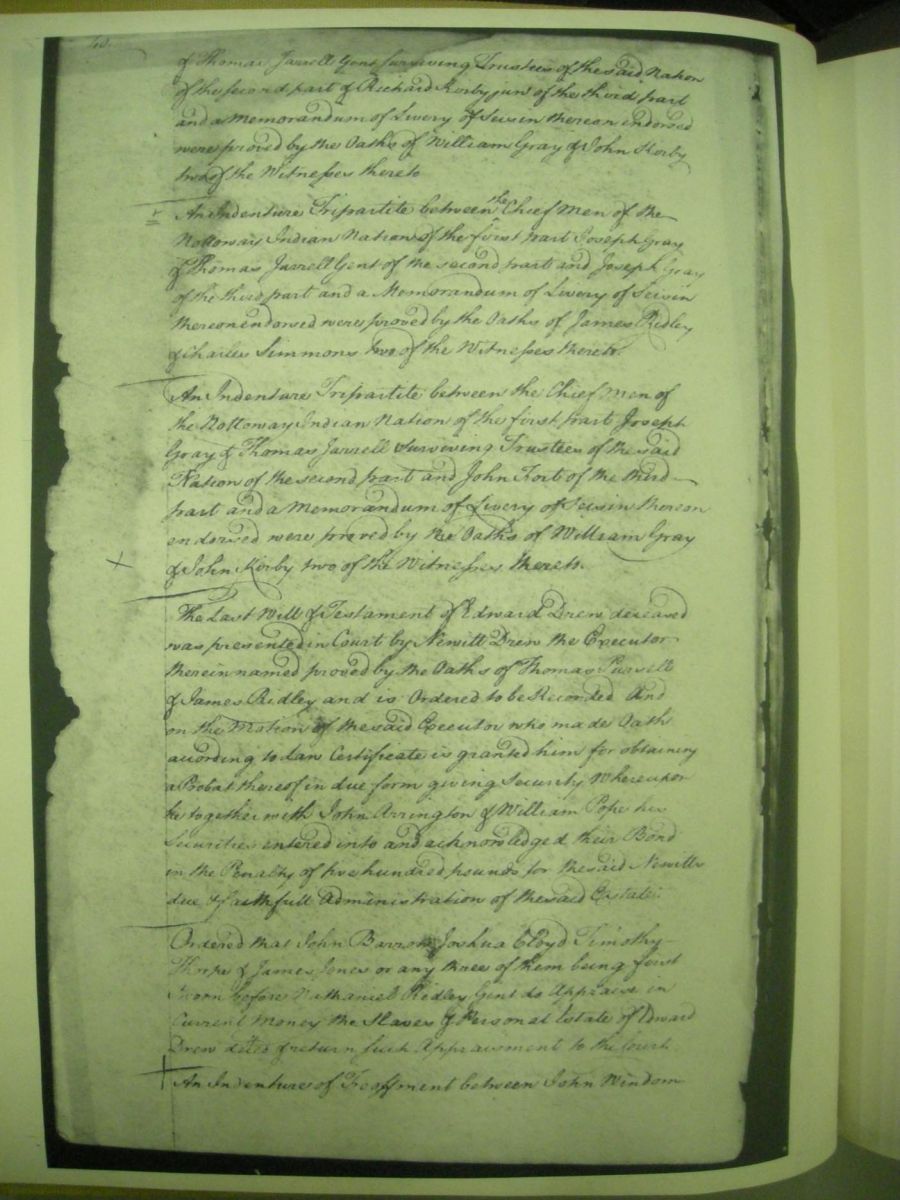 & Thomas Jarrell Gent surviving Trustees of the said Nation
of the second part & Richard Kirby junr of the third part
and a Memorandum of Livery of Seisin thereon endorsed
were proved by the Oaths of William Gray & John Kirby
two of the Witnesses thereto
An Indenture Tripartite between the Chief Men of the
Nottoway Indian Nation of the first part Joseph Gray
& Thomas Jarrell Gent of the second part and Joseph Gray
of the third part and a Memorandum of Livery of Seisin
thereon endorsed were proved by the Oaths of James Ridley
& Charles Simmons two of the Witnesses thereto.
An Indenture Tripartite between the Chief Men of
the Nottoway Indian Nation of the first part Joseph
Gray & Thomas Jarrell Surviving Trustees of the said
Nation of the second part and John Fort of the third
part and a Memorandum of Livery of Seisin thereon
endorsed were proved by the Oaths of William Gray
& John Kirby two of the Witnesses thereto.
The Last Will & Testament of Edward Drew deceased
was presented in Court by Newitt Drew the Executor
therein named proved by the Oaths of Thomas
& James Ridley and is Ordered to be Recorded And
on the Motion of the said Executor who made Oath
according to Law Certificate is granted him for obtaining
a Probat thereof in due form giving Security Whereupon
he together with John Arrington & William Pope his
Securities entered into and acknowledged their Bond
in the Penalty of five hundred pounds for the said Newitts
due & faithfull Administration of the said Estate.
Ordered that John Barrow Joshua Cloyd Timothy
Thorpe & James Jones or any three of them being first
Sworn before Nathaniel Ridley Gent do Appraise in
Current Money the Slaves & Personal Estate of Edward
Drew decd & return such Appraisment to the Court
An Indenture of Feoffment between John Windom